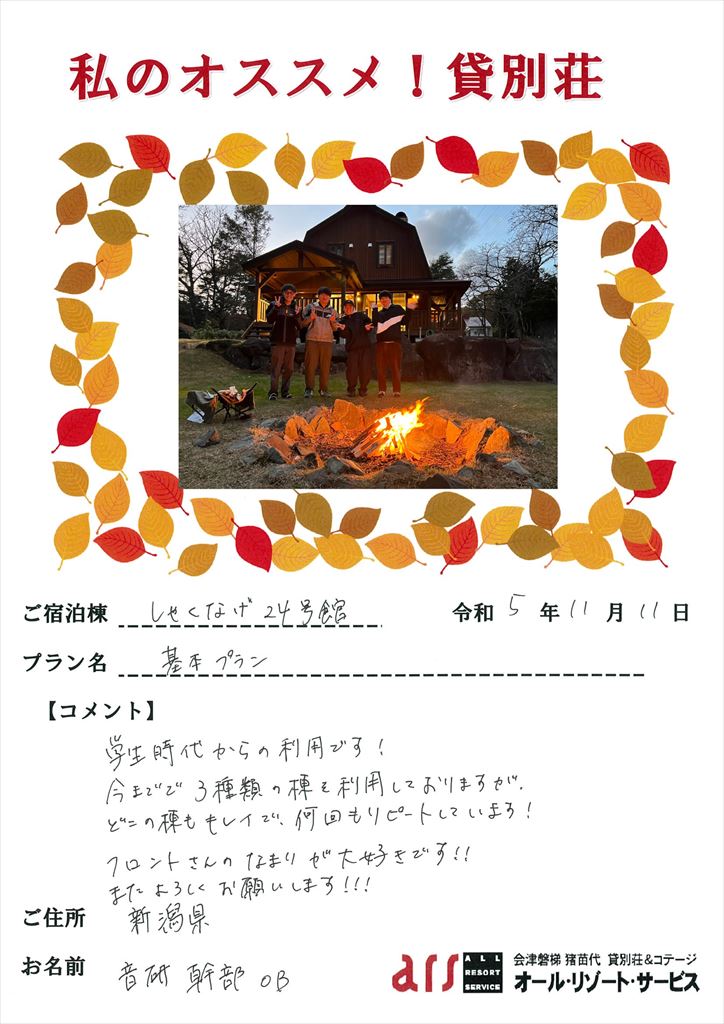 私のオススメ！貸別荘
ご宿泊棟 しゃくなげ24号館 令和5年11月11日
プラン名 基本プラン
【コメント】
学生時代からの利用です！
今までで3種類の棟を利用しておりますが、
どこの棟もキレイで、何回もリピートしています！
フロントさんのなまりが大好きです!!
またよろしくお願いします!!!
ご住所 新潟県
お名前 音研 幹部 OB
ars ALL RESORT SERVICE 会津磐梯 猪苗代 貸別荘&コテージ
オール・リゾート・サービス